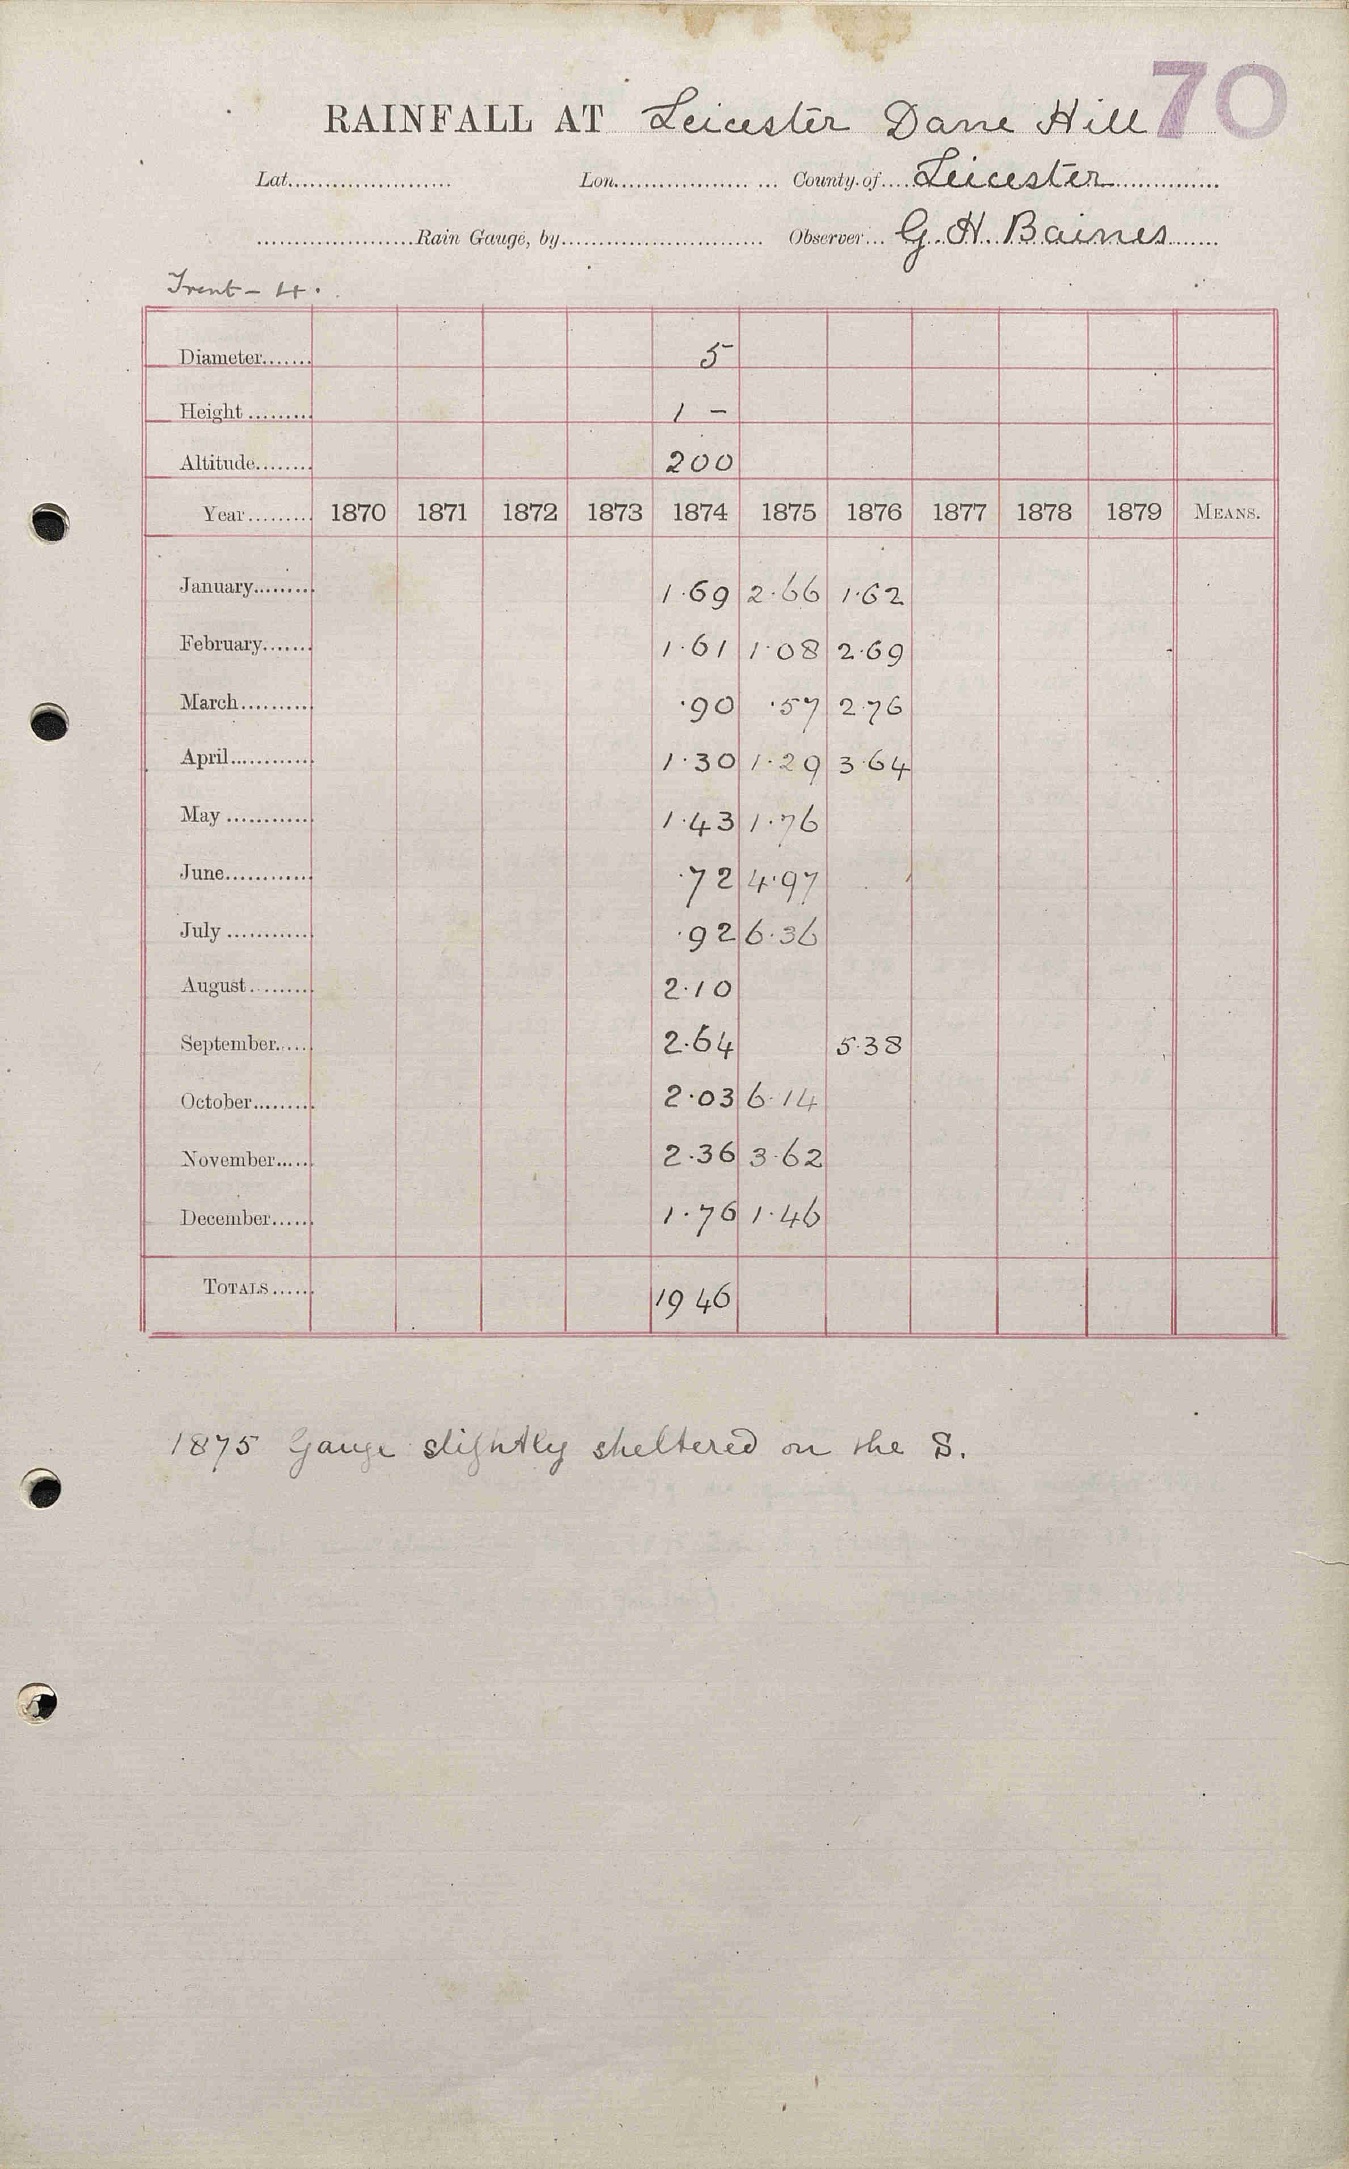 70
RAINFALL AT Leicester Dane Hill
Lat. Lon. County of Leicester
Rain Gauge, by Observer G. H. Baines
Trent - 4.
Diameter 5
Height 1 -
Altitude 200
Year 1870 1871 1872 1873 1874 1875 1876 1877 1878 1879 MEANS.
January 1.69 2.66 1.62
February 1.61 1.08 2.69
March .90 .57 2.76
April 1.30 1.29 3.64
May 1.43 1.76
June .72 4.97
July .92 6.36
August 2.10
September 2.64 5.38
October 2.03 6.14
November 2.36 3.62
December 1.76 1.46
TOTALS 19 46
1875 Gauge slightly sheltered on the S.